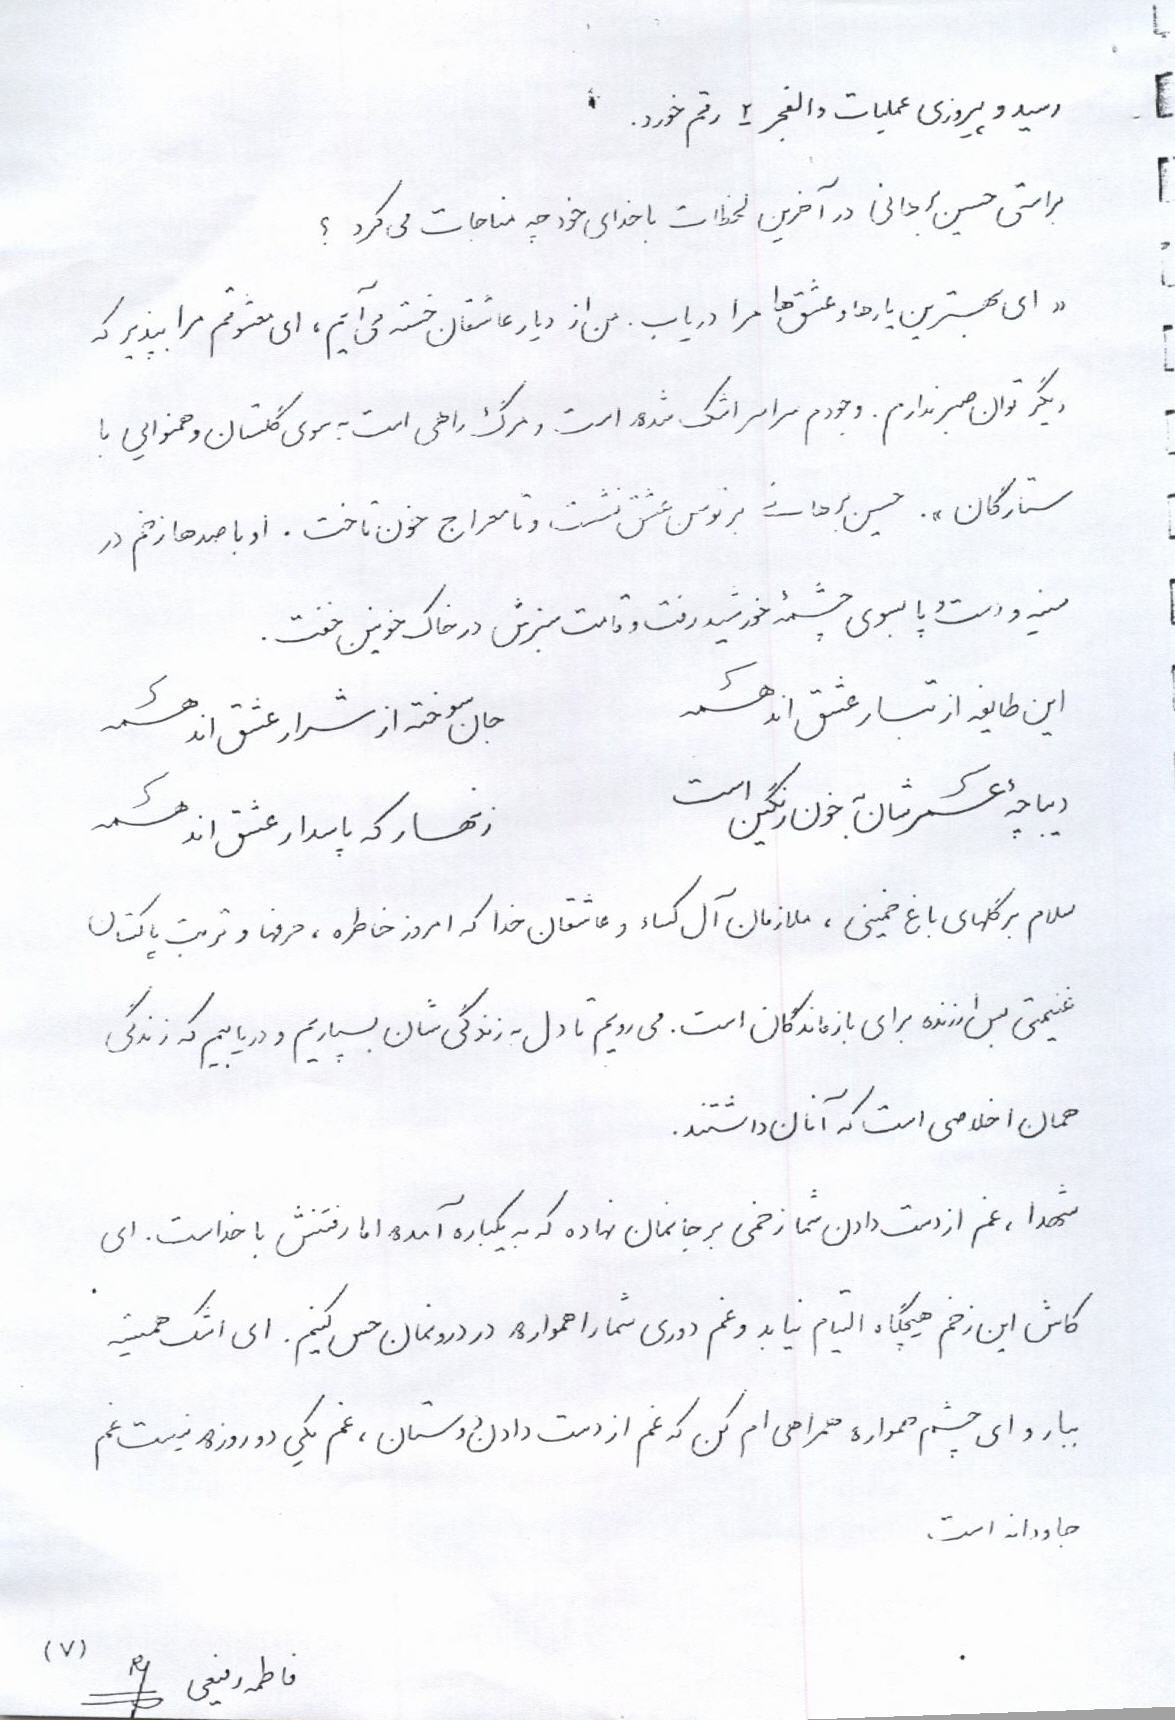 رسید و پیروزی عملیات والفجر ۲ رقم خورد.
براستی حسین برهانی در آخرین لحظات با خدای خود چه مناجات می کرد ؟
« ای بهترین یارها و عشق‌ها مرا دریاب . من از دیار عاشقان خسته می آیم ، ای معشوقم مرا بپذیر که
دیگر توان صبر ندارم . وجودم سراسر اشک شده است و مرگ راهی است به سوی گلستان و همنوایی با
ستارگان » . حسین برهانی بر توسن عشق نشست و تا معراج خون تاخت . او با صدها زخم در
سینه و دست و پا بسوی چشمهٔ خورشید رفت و قامت سبزش در خاک خونین خفت .
این طایفه از تبار عشق اند همه
جان سوخته از شرار عشق اند همه
دیباچهٔ عمرشان به خون رنگین است
زنهار که پاسدار عشق اند همه
سلام بر گلهای باغ خمینی ، ملازمان آل کساء و عاشقان خدا که امروز خاطره ، حرفها و تربت پاکشان
غنیمتی بس ارزنده برای بازماندگان است . می رویم تا دل به زندگی شان بسپاریم و دریابیم که زندگی
همان اخلاصی است که آنان داشتند .
شهدا ، غم از دست دادن شما زخمی بر جانمان نهاده که به یکباره آمده اما رفتنش با خداست . ای
کاش این زخم هیچگاه التیام نیابد و غم دوری شما را همواره در درونمان حس کنیم . ای اشک همیشه
ببار و ای چشم همواره همراهی ام کن که غم از دست دادن دوستان ، غم یکی دو روزه نیست غم
جاودانه است
فاطمه رفیعی
(۷)